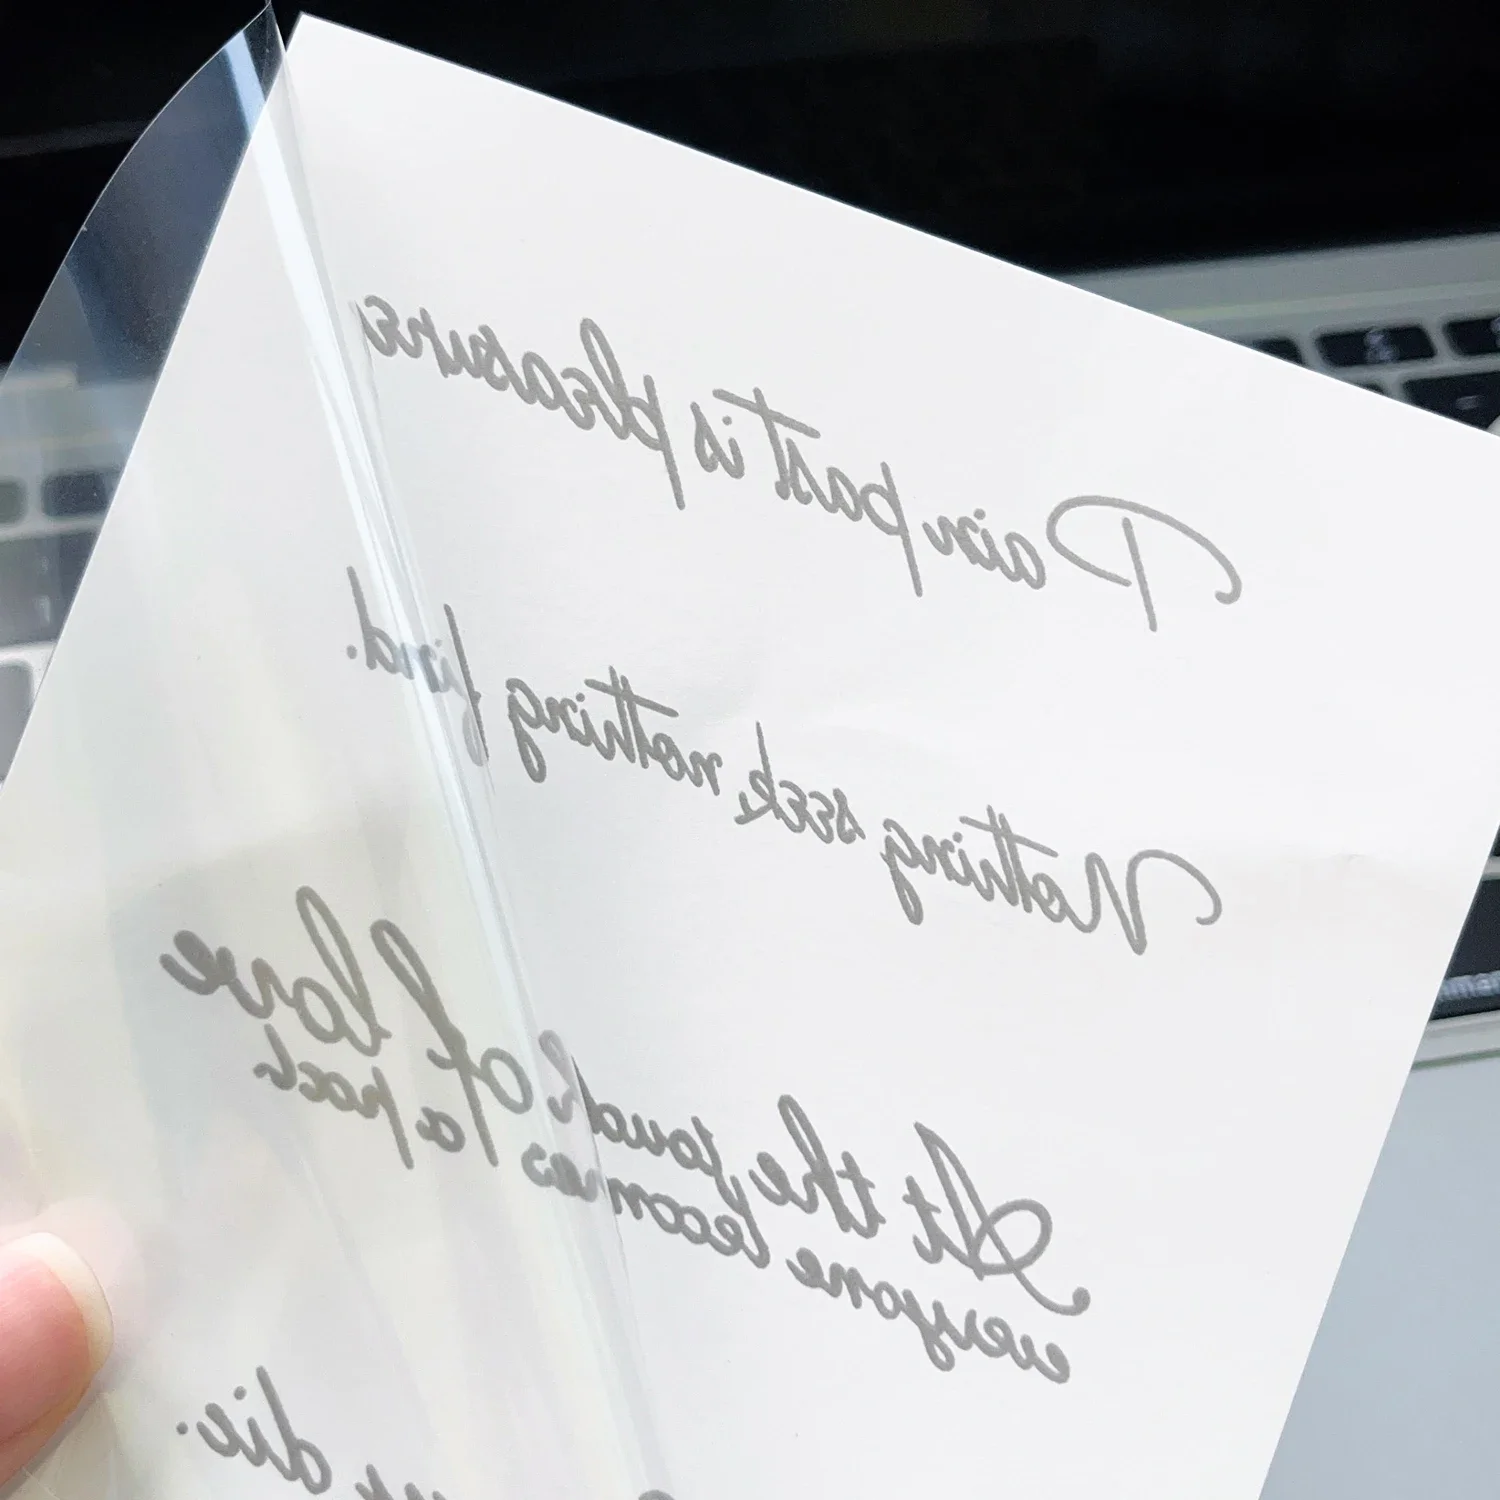 Pain past is pleasure
Nothing seek, nothing find.
At the touch of love
everyone becomes a poet.
die.